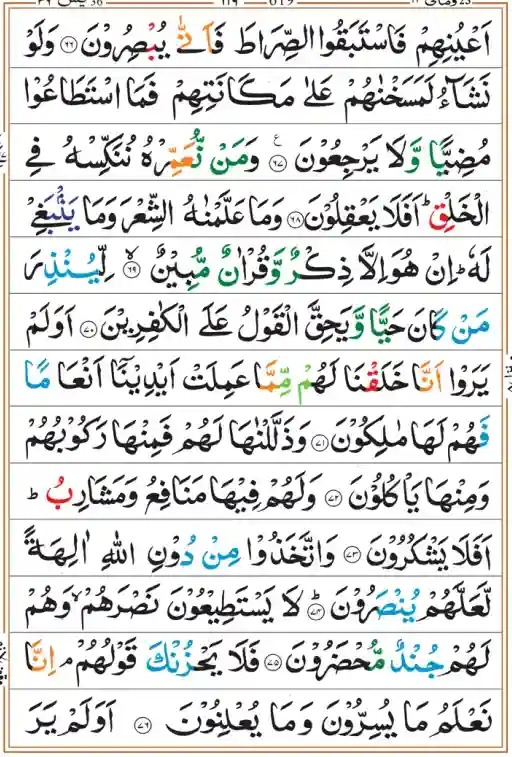 اَعْيُنِهِمْ فَاسْتَبَقُوا الصِّرَاطَ فَاَنّٰى يُبْصِرُوْنَ ﴿٦٦﴾ وَلَوْ
نَشَآءُ لَمَسَخْنٰهُمْ عَلٰى مَكَانَتِهِمْ فَمَا اسْتَطَاعُوْا
مُضِيًّا وَّلَا يَرْجِعُوْنَ ﴿٦٧﴾ وَمَنْ نُّعَمِّرْهُ نُنَكِّسْهُ فِى
الْخَلْقِ ؕ اَفَلَا يَعْقِلُوْنَ ﴿٦٨﴾ وَمَا عَلَّمْنٰهُ الشِّعْرَ وَمَا يَنْۢبَغِىْ
لَهٗ ؕ اِنْ هُوَ اِلَّا ذِكْرٌ وَّقُرْاٰنٌ مُّبِيْنٌ ۙ﴿٦٩﴾ لِّيُنْذِرَ
مَنْ كَانَ حَيًّا وَّيَحِقَّ الْقَوْلُ عَلَى الْكٰفِرِيْنَ ﴿٧٠﴾ اَوَلَمْ
يَرَوْا اَنَّا خَلَقْنَا لَهُمْ مِّمَّا عَمِلَتْ اَيْدِيْنَاۤ اَنْعَامًا
فَهُمْ لَهَا مٰلِكُوْنَ ﴿٧١﴾ وَذَلَّلْنٰهَا لَهُمْ فَمِنْهَا رَكُوْبُهُمْ
وَمِنْهَا يَاْكُلُوْنَ ﴿٧٢﴾ وَلَهُمْ فِيْهَا مَنَافِعُ وَمَشَارِبُ ؕ
اَفَلَا يَشْكُرُوْنَ ﴿٧٣﴾ وَاتَّخَذُوْا مِنْ دُوْنِ اللّٰهِ اٰلِهَةً
لَّعَلَّهُمْ يُنْصَرُوْنَ ؕ﴿٧٤﴾ لَا يَسْتَطِيْعُوْنَ نَصْرَهُمْ ۙ وَهُمْ
لَهُمْ جُنْدٌ مُّحْضَرُوْنَ ﴿٧٥﴾ فَلَا يَحْزُنْكَ قَوْلُهُمْ ۘ اِنَّا
نَعْلَمُ مَا يُسِرُّوْنَ وَمَا يُعْلِنُوْنَ ﴿٧٦﴾ اَوَلَمْ يَرَ